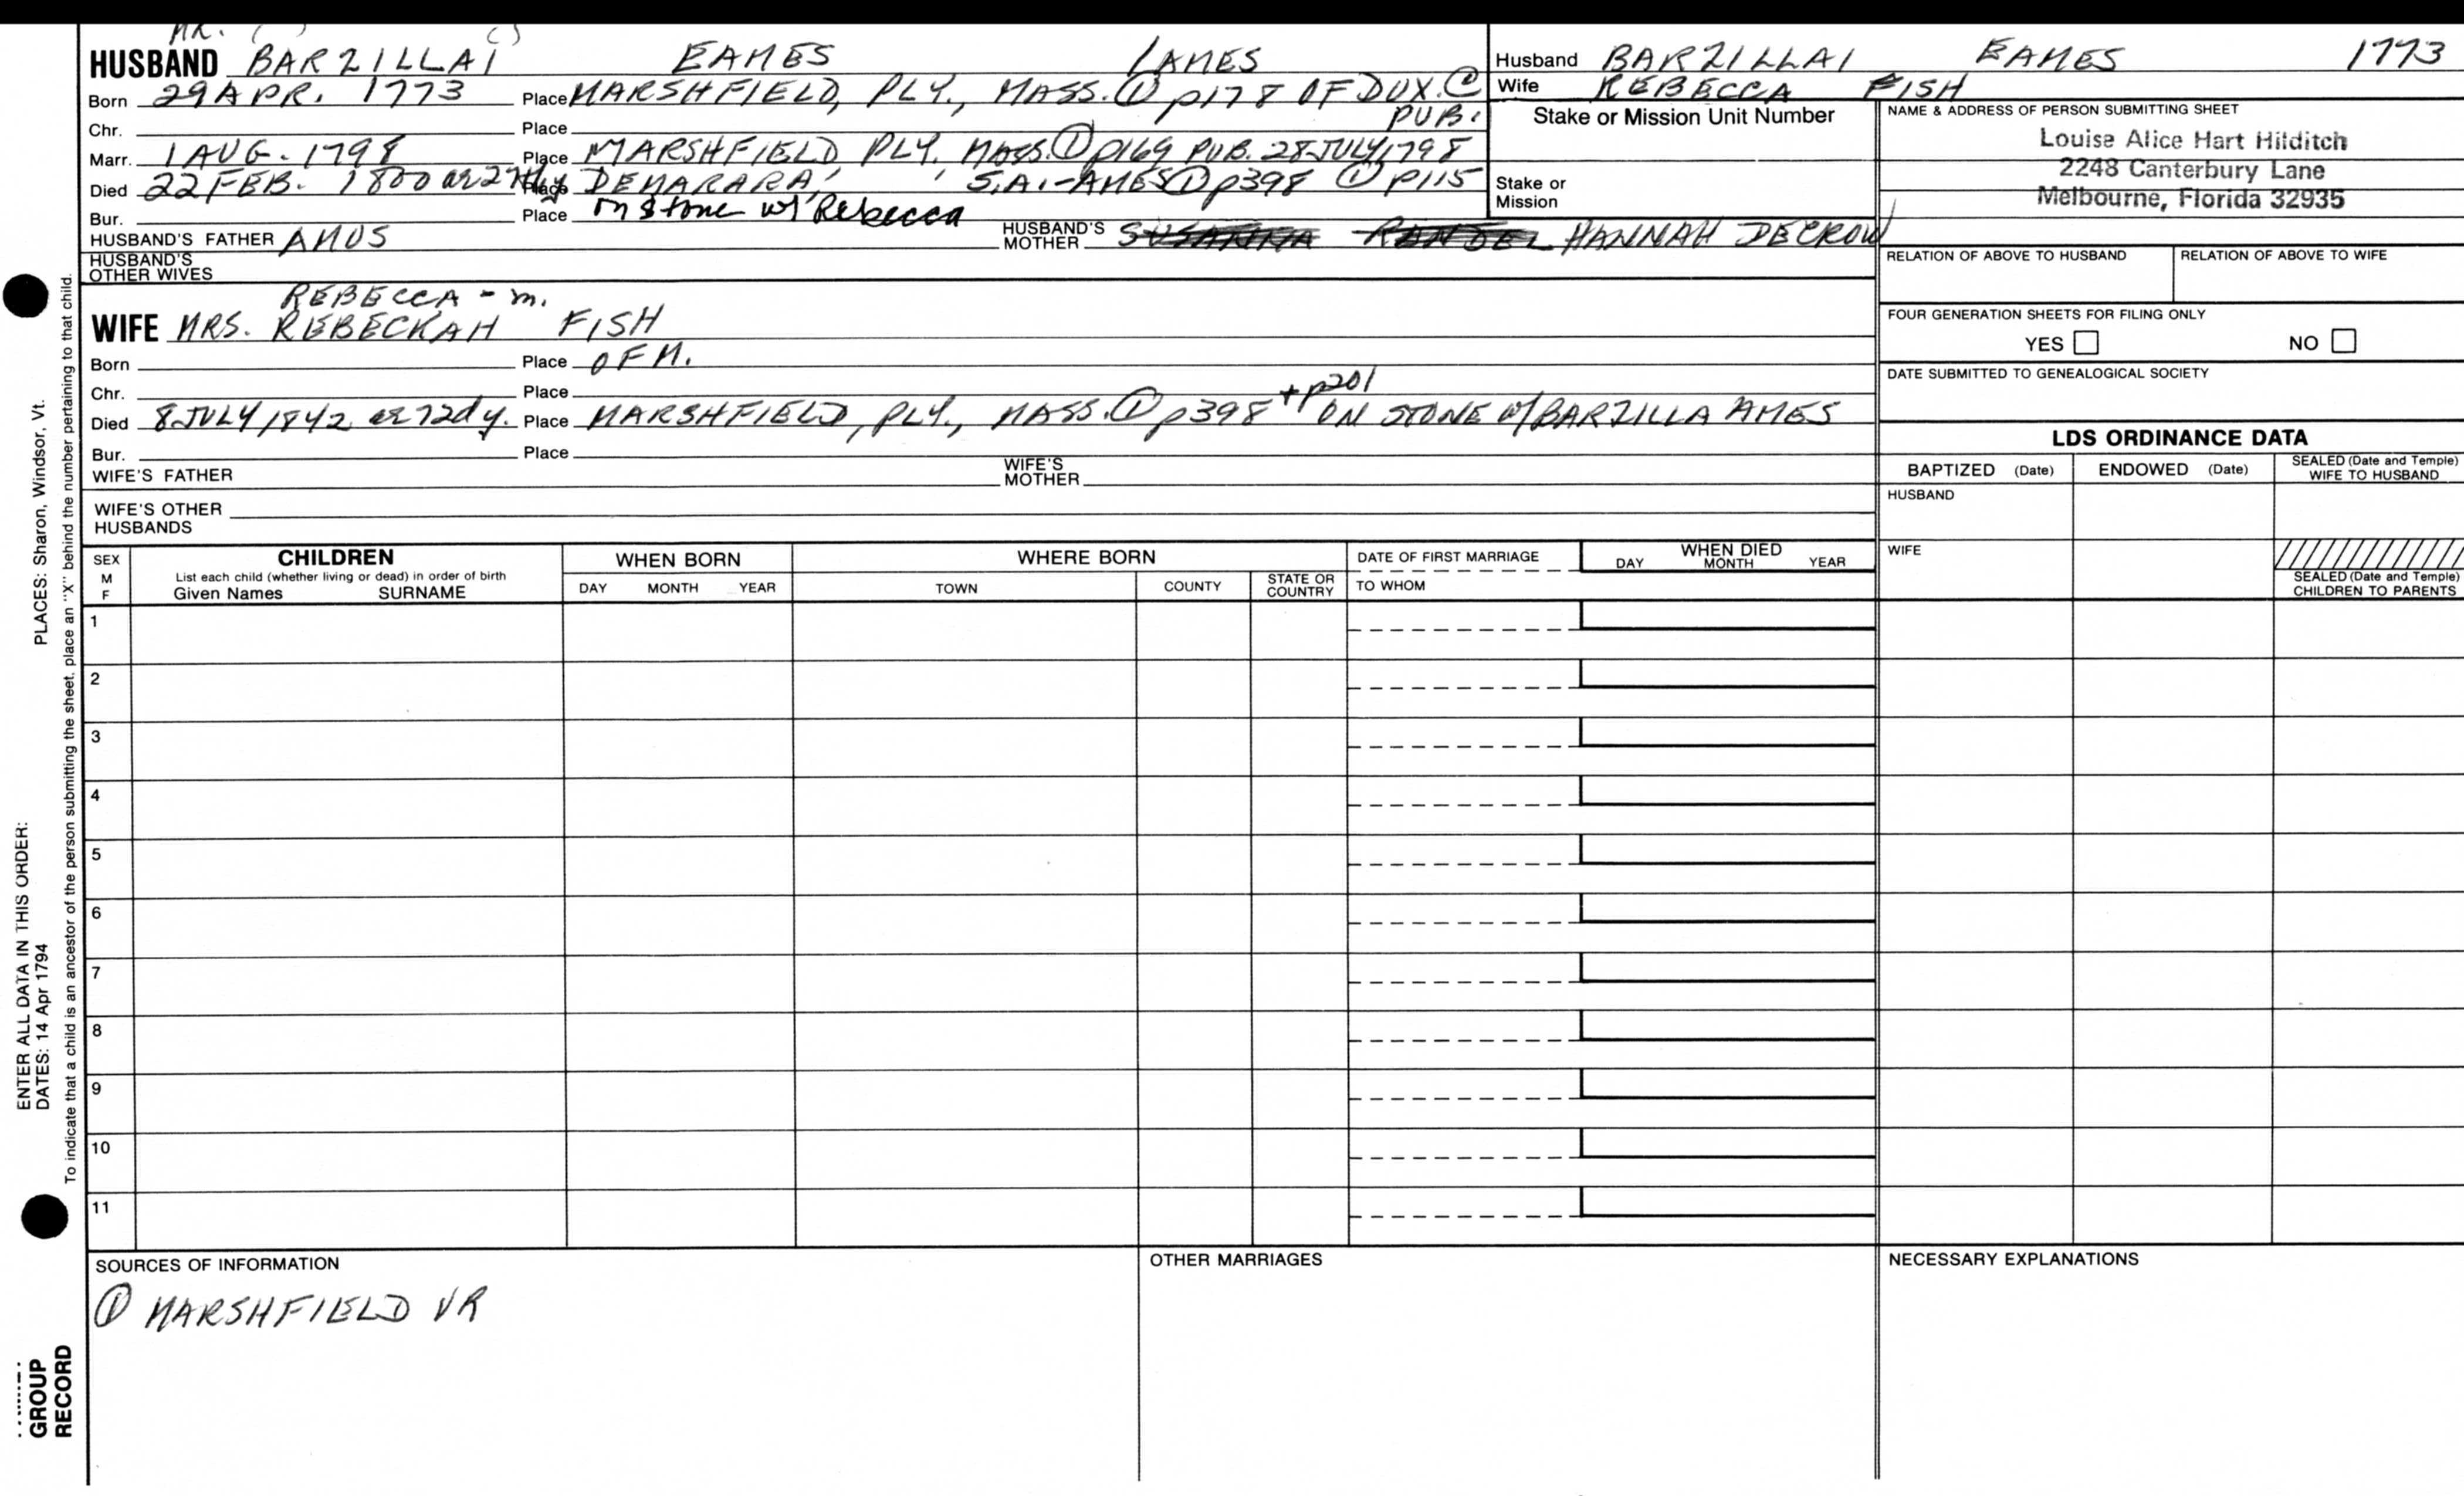 MR. ( ) ( )
HUSBAND BARZILLAI EAMES / AMES
Born 29 APR. 1773 Place MARSHFIELD, PLY., MASS. ① p178 OF DUX. @ PUB.
Chr. Place
Marr. 1 AUG. 1798 Place MARSHFIELD PLY. MASS. ① p169 PUB. 28 JULY 1798
Died 22 FEB. 1800 ae 27thy Place DEMARARA, , S.A. - AMES ① p398 ① p115
Bur. Place on stone w/ Rebecca
HUSBAND'S FATHER AMOS HUSBAND'S MOTHER SUSANNA RANDEL HANNAH DECROW
HUSBAND'S OTHER WIVES
REBECCA - m.
WIFE MRS. REBECKAH FISH
Born Place OF M.
Chr. Place
Died 8 JULY 1842 ae 72dy. Place MARSHFIELD, PLY., MASS. ① p398 + p201 ON STONE W/ BARZILLA AMES
Bur. Place
WIFE'S FATHER WIFE'S MOTHER
WIFE'S OTHER HUSBANDS
Husband BARZILLAI EAMES 1773
Wife REBECCA FISH
Stake or Mission Unit Number
Stake or Mission
NAME & ADDRESS OF PERSON SUBMITTING SHEET
Louise Alice Hart Hilditch
2248 Canterbury Lane
Melbourne, Florida 32935
RELATION OF ABOVE TO HUSBAND RELATION OF ABOVE TO WIFE
FOUR GENERATION SHEETS FOR FILING ONLY
YES NO
DATE SUBMITTED TO GENEALOGICAL SOCIETY
LDS ORDINANCE DATA
BAPTIZED (Date) ENDOWED (Date) SEALED (Date and Temple) WIFE TO HUSBAND
HUSBAND
WIFE
SEALED (Date and Temple) CHILDREN TO PARENTS
SEX M F
CHILDREN
List each child (whether living or dead) in order of birth
Given Names SURNAME
WHEN BORN
DAY MONTH YEAR
WHERE BORN
TOWN COUNTY STATE OR COUNTRY
DATE OF FIRST MARRIAGE
TO WHOM
WHEN DIED
DAY MONTH YEAR
1
2
3
4
5
6
7
8
9
10
11
SOURCES OF INFORMATION
① MARSHFIELD VR
OTHER MARRIAGES
NECESSARY EXPLANATIONS
PLACES: Sharon, Windsor, Vt.
ENTER ALL DATA IN THIS ORDER:
DATES: 14 Apr 1794
To indicate that a child is an ancestor of the person submitting the sheet, place an "X" behind the number pertaining to that child.
GROUP
RECORD